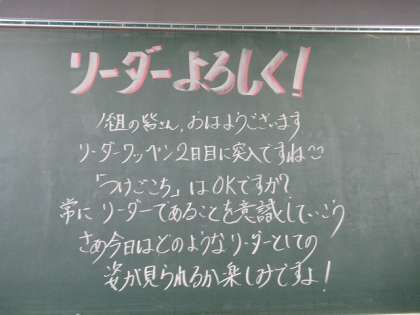 リーダーよろしく!
1組の皆さん、おはようございます
リーダーワッペン2日目に突入ですね
「つけごこち」はOKですか?
常にリーダーであることを意識していこう
さあ今日はどのようなリーダーとしての
姿が見られるか楽しみですよ!